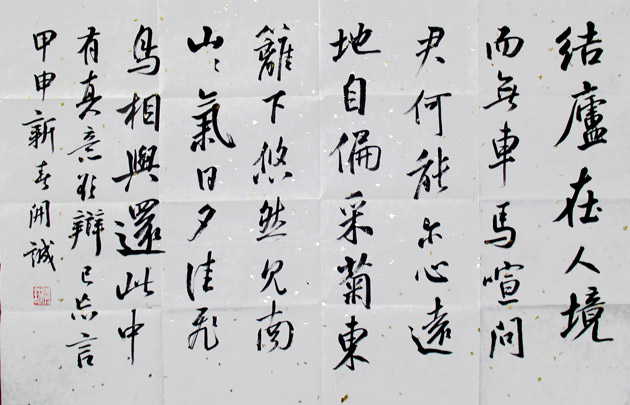 結廬在人境
而無車馬喧問
君何能尓心遠
地自偏采菊東
籬下悠然見南
山山氣日夕佳飛
鳥相與還此中
有真意欲辯已忘言
甲申新春開誠